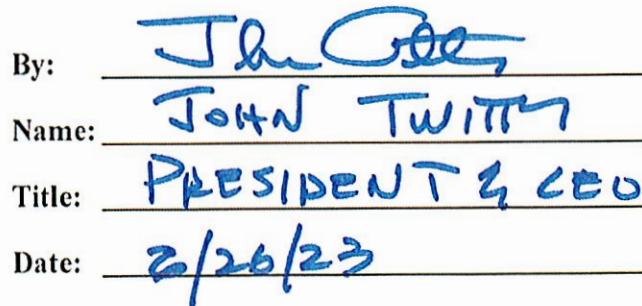 By: John
Name: JOHN TWITTY
Title: PRESIDENT & CEO
Date: /26/23